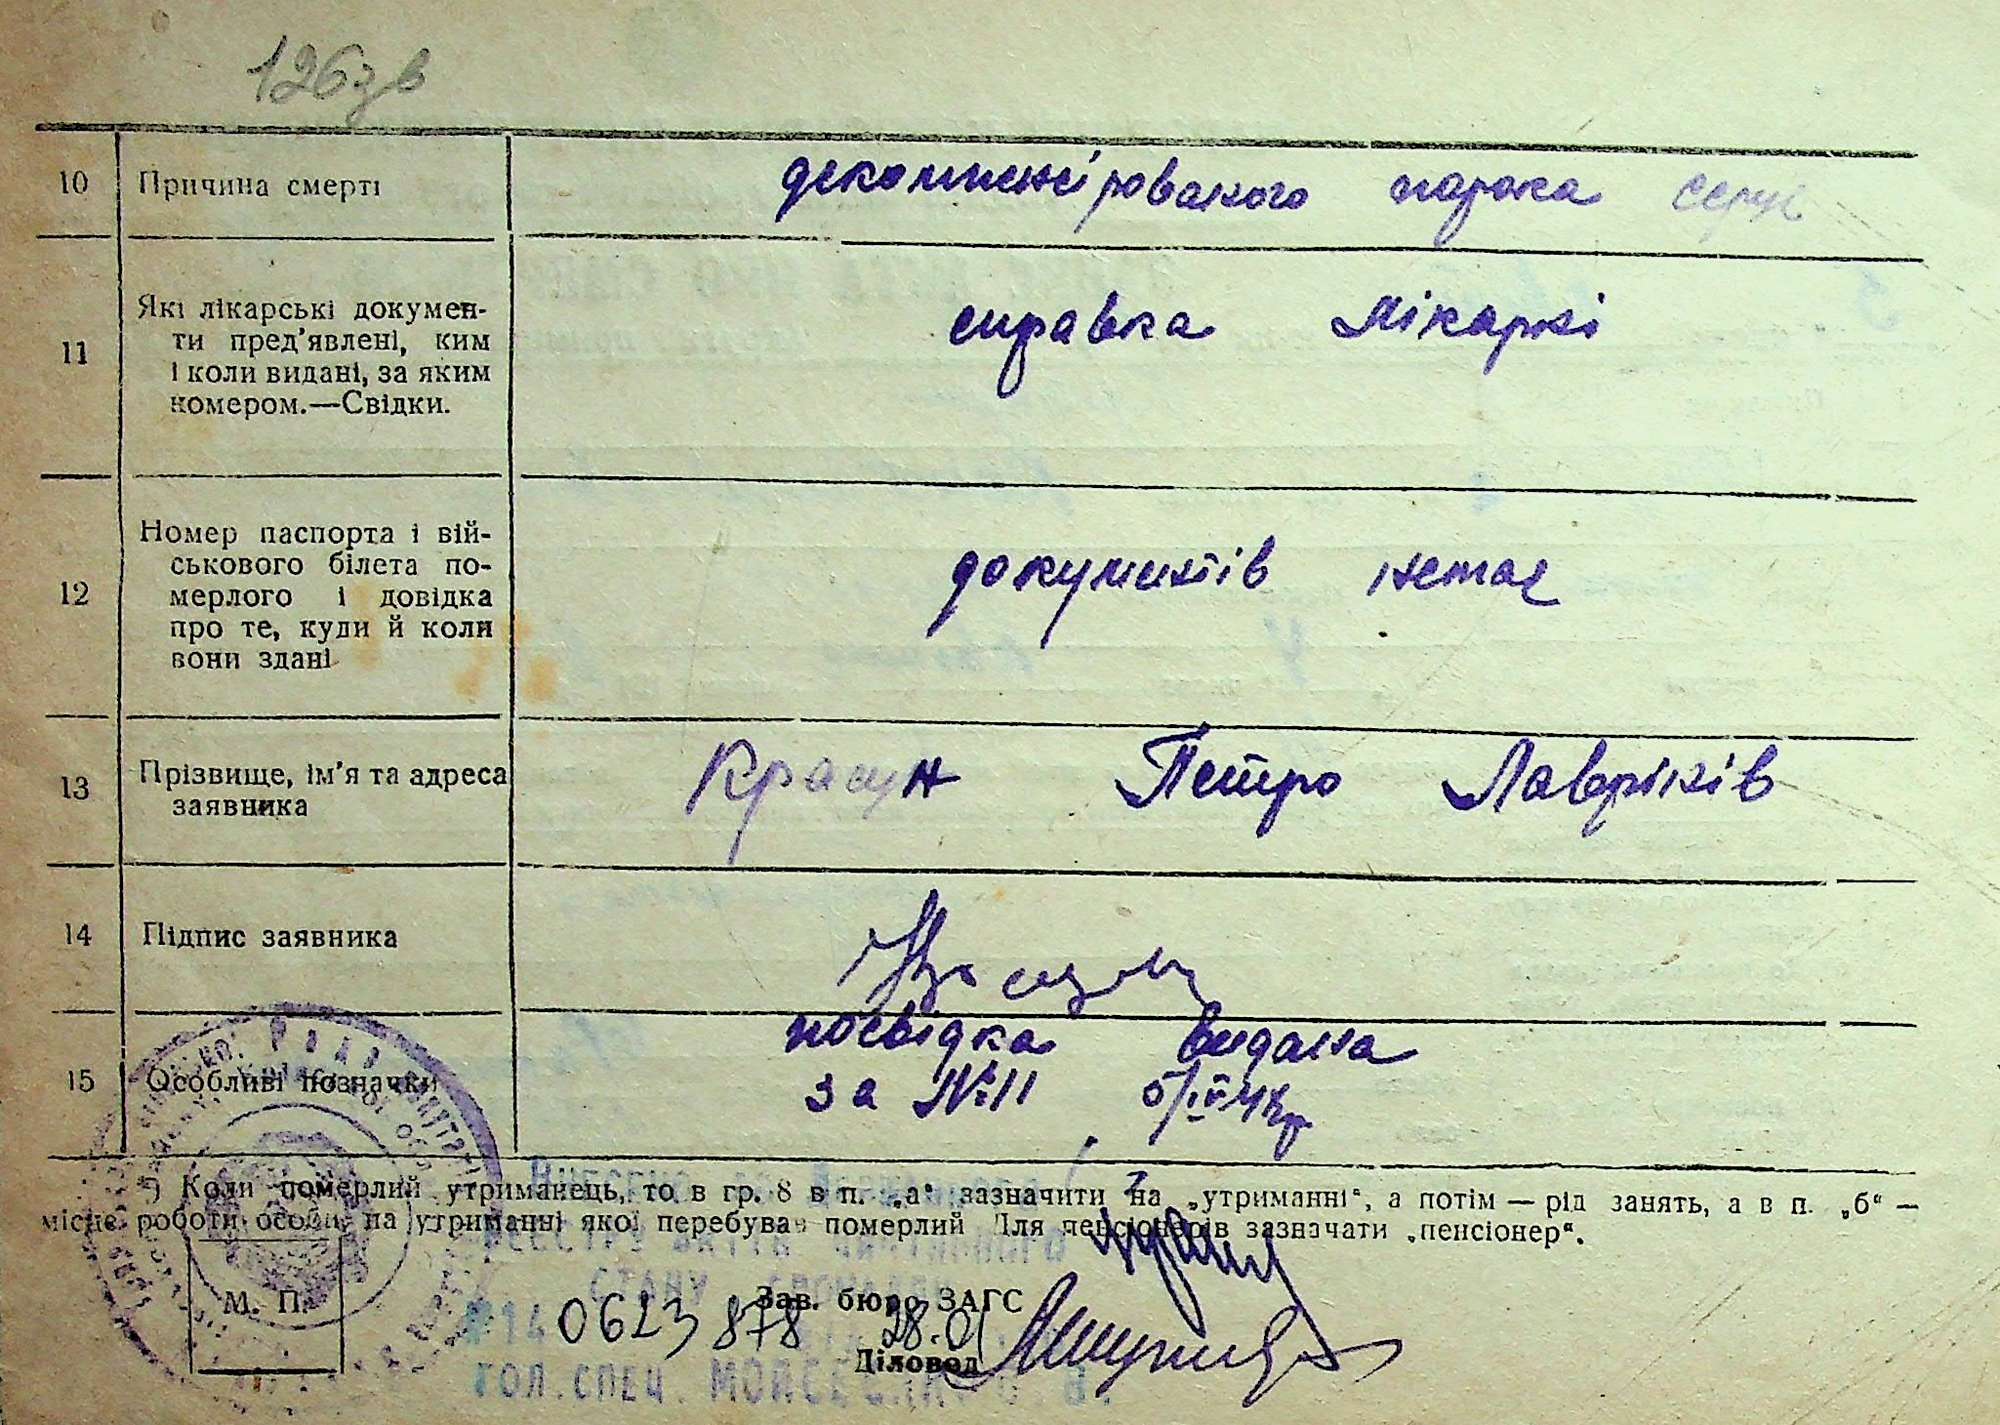 126зв
10 Причина смерті декомпенсірованого порока серця
11 Які лікарські докумен-
ти пред'явлені, ким
і коли видані, за яким
номером.—Свідки.
справка Лікарні
12 Номер паспорта і вій-
ськового білета по-
мерлого і довідка
про те, куди й коли
вони здані
документів немає
13 Прізвище, ім'я та адреса
заявника
Красун Петро Лаврінів
14 Підпис заявника
15 Особливі позначки
посвідка видана
за №11 5/IV 48р
) Коли померлий утриманець, то в гр. 8 в п. „а“ зазначити на „утриманні“, а потім — рід занять, а в п. „б“ —
місце роботи особи, на утриманні якої перебував померлий Для пенсіонерів зазначати „пенсіонер“.
М. П.
Зав. бюро ЗАГС
0623 878 28.01
Діловод
РЕЄСТРУ АКТІВ
СТАНУ
№14
ГОЛ.СПЕЦ. В.